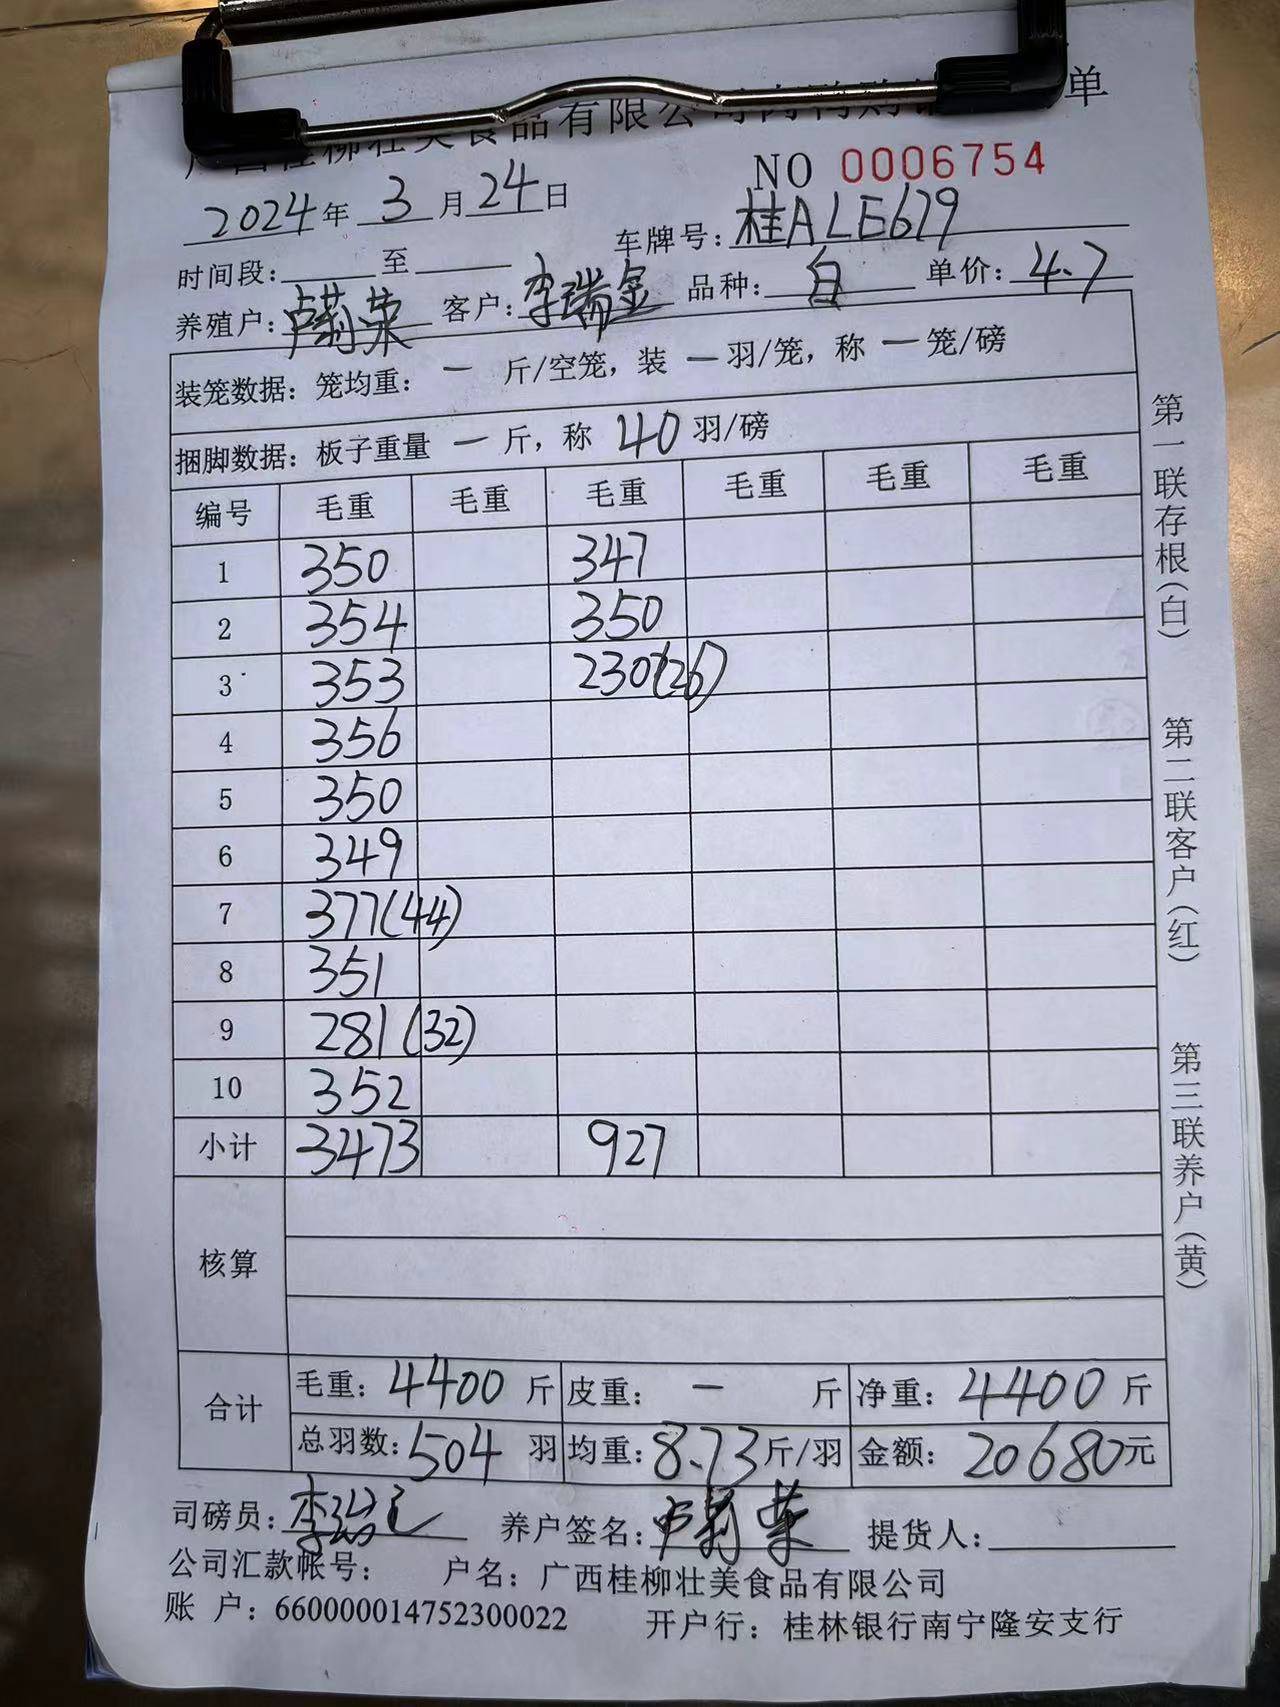 壮美食品有限公司 单
NO 0006754
2024年 3月24日
车牌号: 桂ALE679
时间段: 至
养殖户: 卢莉荣 客户: 李瑞金 品种: 白 单价: 4.7
装笼数据: 笼均重: 一 斤/空笼, 装 一 羽/笼, 称 一 笼/磅
捆脚数据: 板子重量 一 斤, 称 40 羽/磅
编号 毛重 毛重 毛重 毛重 毛重 毛重
1 350 347
2 354 350
3 353 230(26)
4 356
5 350
6 349
7 377(44)
8 351
9 281(32)
10 352
小计 3473 927
核算
合计 毛重: 4400 斤 皮重: 一 斤 净重: 4400 斤
总羽数: 504 羽 均重: 8.73 斤/羽 金额: 20680元
司磅员: 养户签名: 卢莉荣 提货人:
公司汇款帐号: 户名: 广西桂柳壮美食品有限公司
账 户: 660000014752300022 开户行: 桂林银行南宁隆安支行
第一联存根(白)
第二联客户(红)
第三联养户(黄)